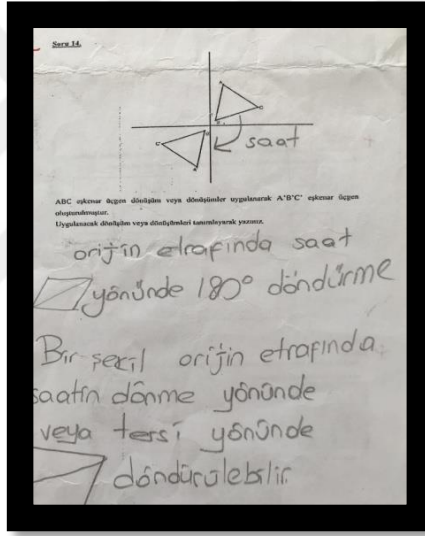 Soru 14.
saat
ABC eşkenar üçgen dönüşüm veya dönüşümler uygulanarak A'B'C' eşkenar üçgen
oluşturulmuştur.
Uygulanacak dönüşüm veya dönüşümleri tanımlayarak yazınız.
orijin etrafında saat
yönünde 180° döndürme
Bir şekil orijin etrafında
saatin dönme yönünde
veya tersi yönünde
döndürülebilir.